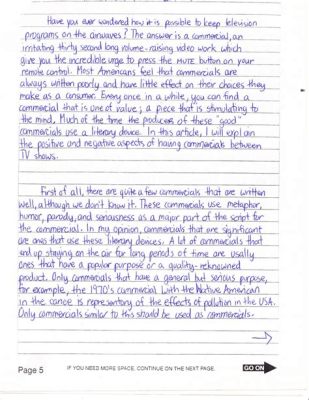 Have you ever wondered how it is possible to keep television
programs on the airwaves? The answer is a commercial, an
irritating thirty second long volume-raising video work which
give you the incredible urge to press the MUTE button on your
remote control. Most Americans feel that commercials are
always written poorly and have little effect on their choices they
make as a consumer. Every once in a while, you can find a
commercial that is one of value; a piece that is stimulating to
the mind. Much of the time the producers of these "good"
commercials use a literary device. In this article, I will explain
the positive and negative aspects of having commercials between
TV shows.
First of all, there are quite a few commercials that are written
well, although we don't know it. These commercials use metaphor,
humor, parody, and seriousness as a major part of the script for
the commercial. In my opinion, commercials that are significant
are ones that use these literary devices. A lot of commercials that
end up staying on the air for long periods of time are usally
ones that have a popular purpose or a quality-reknowned
product. Only commercials that have a general but serious purpose,
for example, the 1970's commercial with the Native American
in the canoe is representory of the effects of pollution in the USA.
Only commercials similar to this should be used as commercials.
Page 5
IF YOU NEED MORE SPACE, CONTINUE ON THE NEXT PAGE.
GO ON